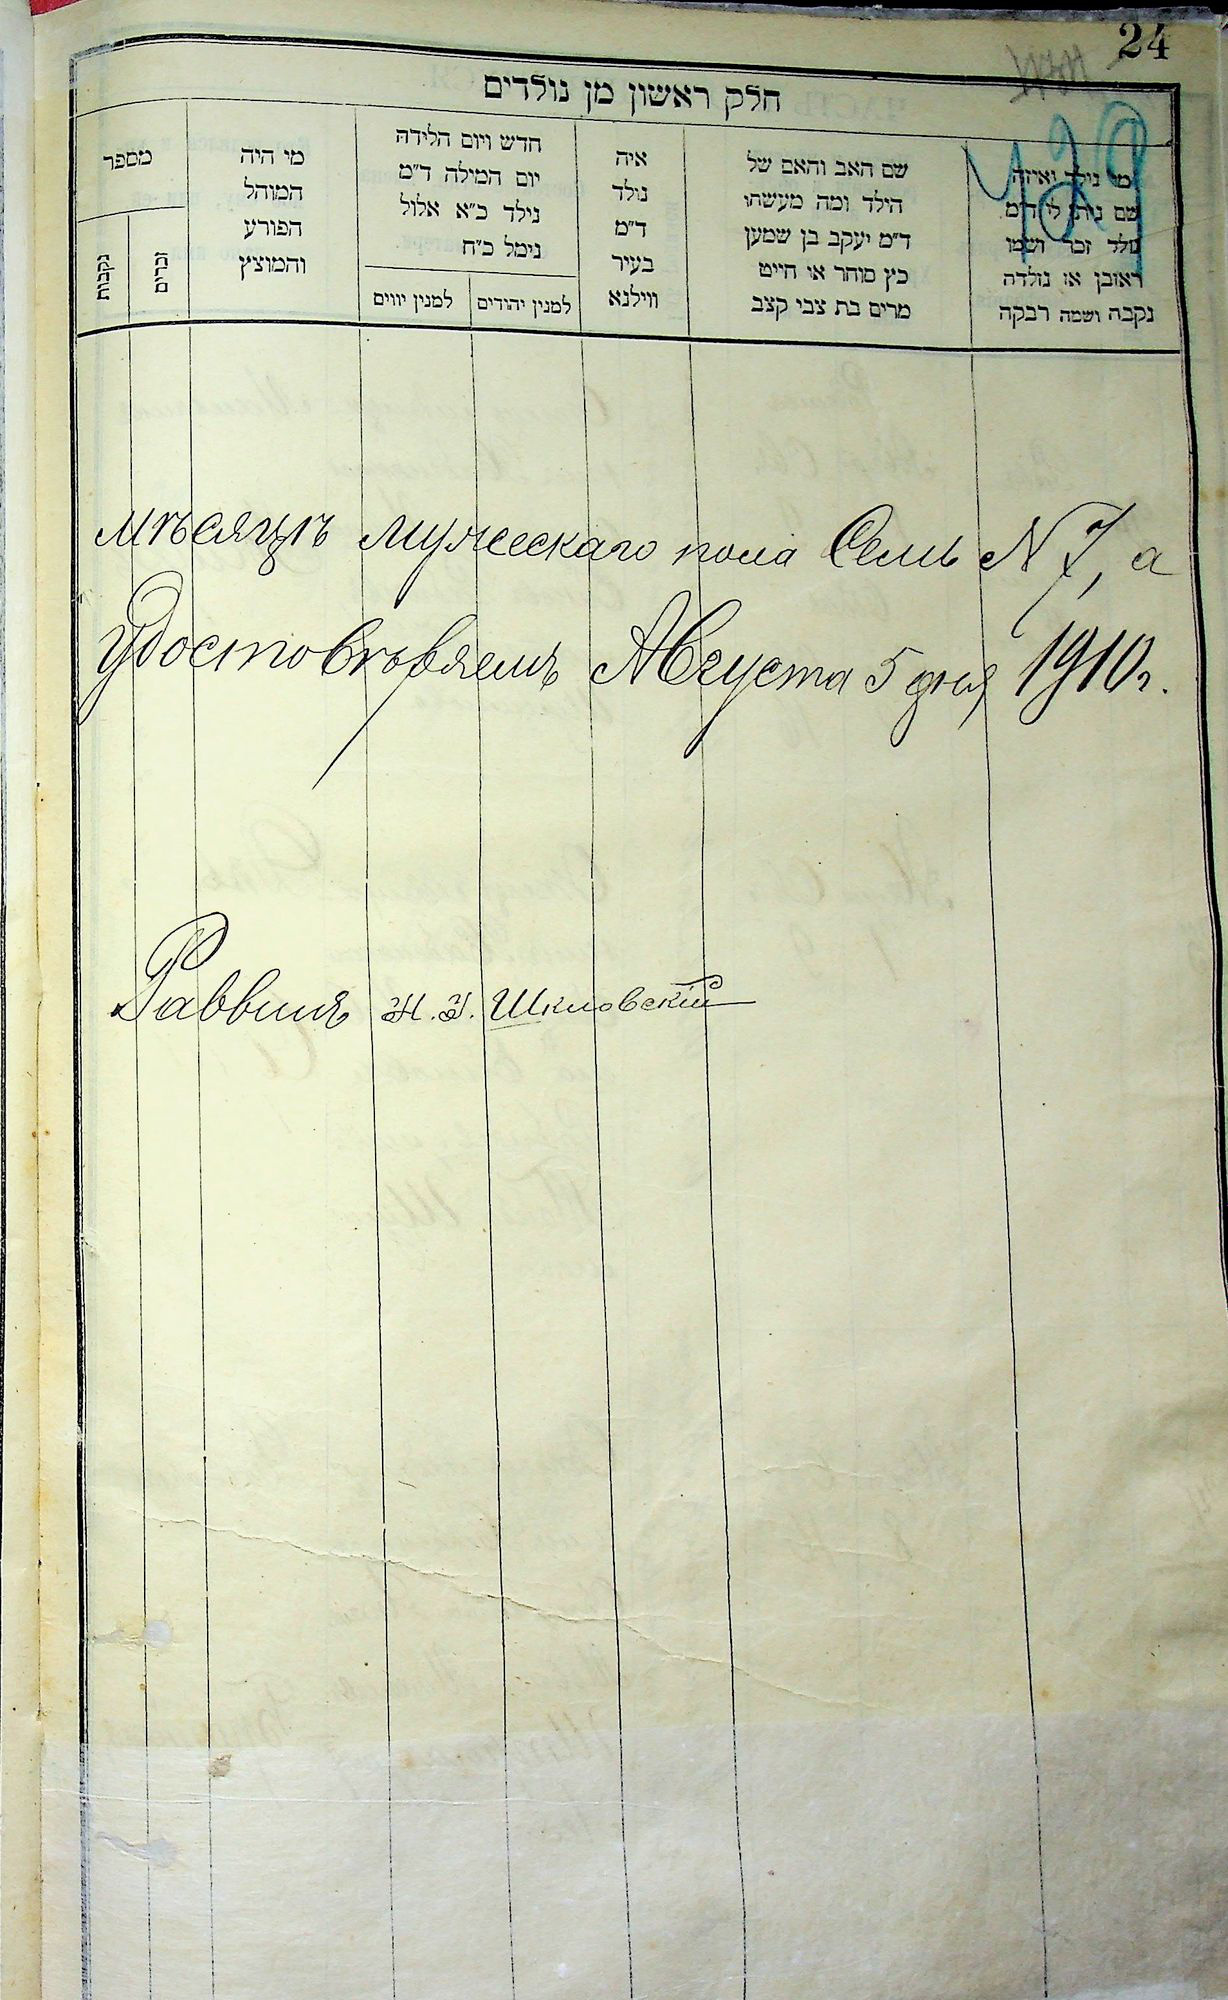 24
חלק ראשון מן נולדים
מי נילד ואיזה
שם ניתן לי ד"מ
נולד זכר ושמו
ראובן או נולדה
נקבה ושמה רבקה
שם האב והאם של
הילד ומה מעשהו
ד"מ יעקב בן שמעון
כץ סוחר או חייט
מרים בת צבי קצב
איה
נולד
ד"מ
בעיר
ווילנא
חדש ויום הלידה
יום המילה ד"מ
נילד כ"א אלול
נימל כ"ח
למנין יהודים
למנין יווים
מי היה
המוהל
הפורע
והמוצץ
מספר
זכרים
נקבות
мѣсяцѣ мужескаго пола Семь N 7, а
удостовѣряемъ Августа 5 дня 1910 г.
Раввинъ И. И. Шкловскій